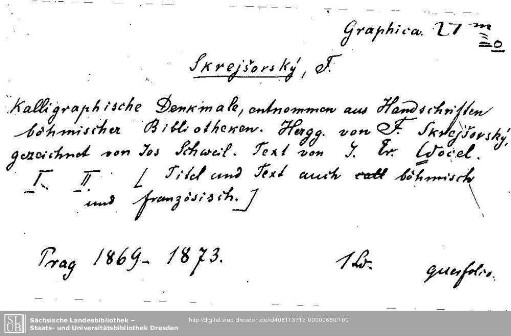 Graphica. 27 m
Skrejšorský, F.
Kalligraphische Denkmale, entnommen aus Handschriften
böhmischer Bibliotheken. Hergg. von F. Skrejšorský,
gezeichnet von Jos Schweil. Text von J. Er. Wocel.
I. II. [Titel und Text auch böhmisch
und französisch.]
Prag 1869-1873. 1 Bd. querfolio.
Sächsische Landesbibliothek –
Staats- und Universitätsbibliothek Dresden